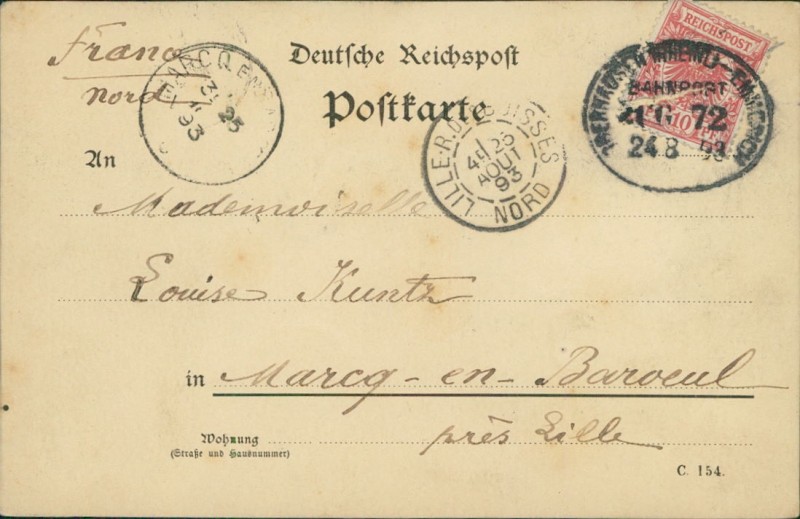 Franc
Nord
Deutsche Reichspost
Postkarte
REICHSPOST
10
MARCQ
25
93
LILLE-R.D.
NORD
4E 25
AOUT
93
OBERHAUSEN (RHEINL)-EMMERICH
BAHNPOST
ZUG 72
24 8 93
An
Mademoiselle
Louise Kuntz
in Marcq-en-Baroeul
Wohnung
(Straße und Hausnummer)
près Lille
C. 154.